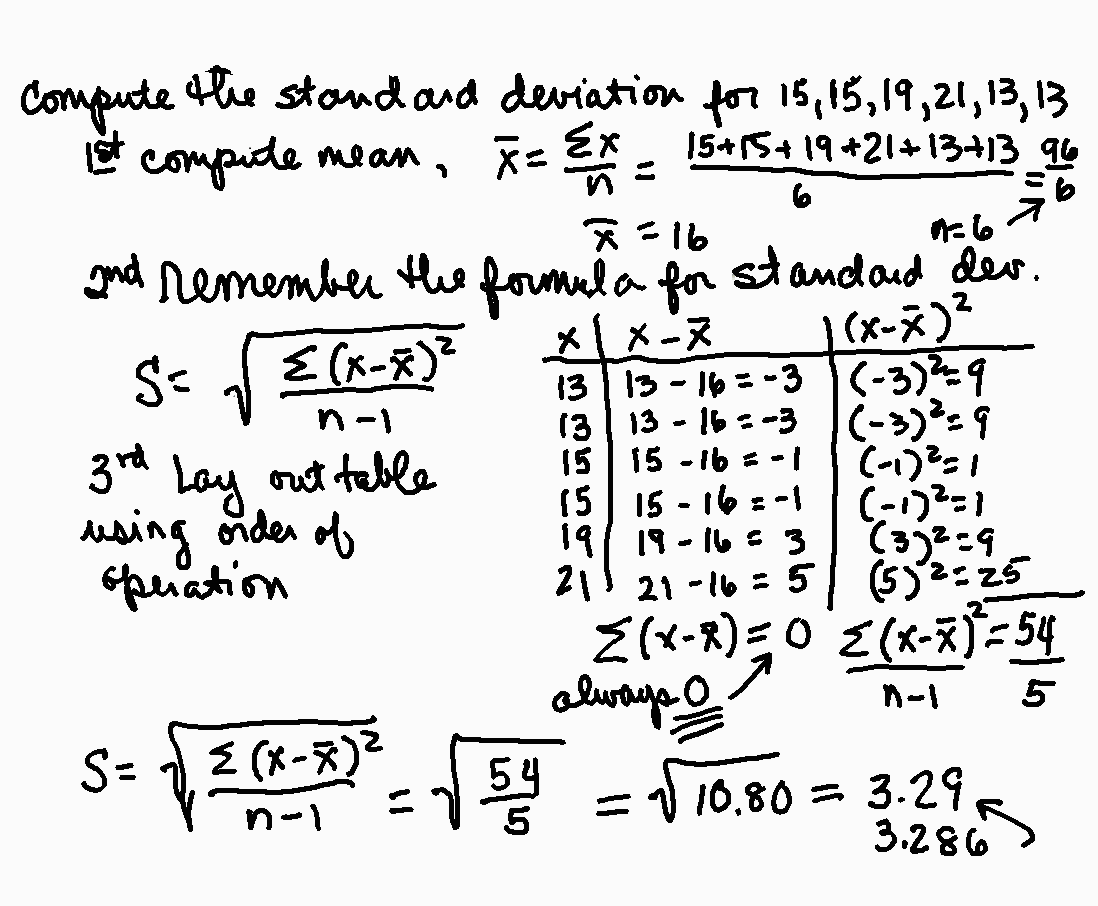 Compute the standard deviation for 15, 15, 19, 21, 13, 13
1st compute mean, x̄ = Σx/n = (15+15+19+21+13+13)/6 = 96/6
x̄ = 16 n=6
2nd Remember the formula for standard dev.
S = √(Σ(x-x̄)²/(n-1))
x | x - x̄ | (x-x̄)²
13 | 13 - 16 = -3 | (-3)² = 9
13 | 13 - 16 = -3 | (-3)² = 9
15 | 15 - 16 = -1 | (-1)² = 1
15 | 15 - 16 = -1 | (-1)² = 1
19 | 19 - 16 = 3 | (3)² = 9
21 | 21 - 16 = 5 | (5)² = 25
3rd Lay out table
using order of
operation
Σ(x-x̄) = 0 Σ(x-x̄)²/(n-1) = 54/5
always 0
S = √(Σ(x-x̄)²/(n-1)) = √(54/5) = √10.80 = 3.29
3.286